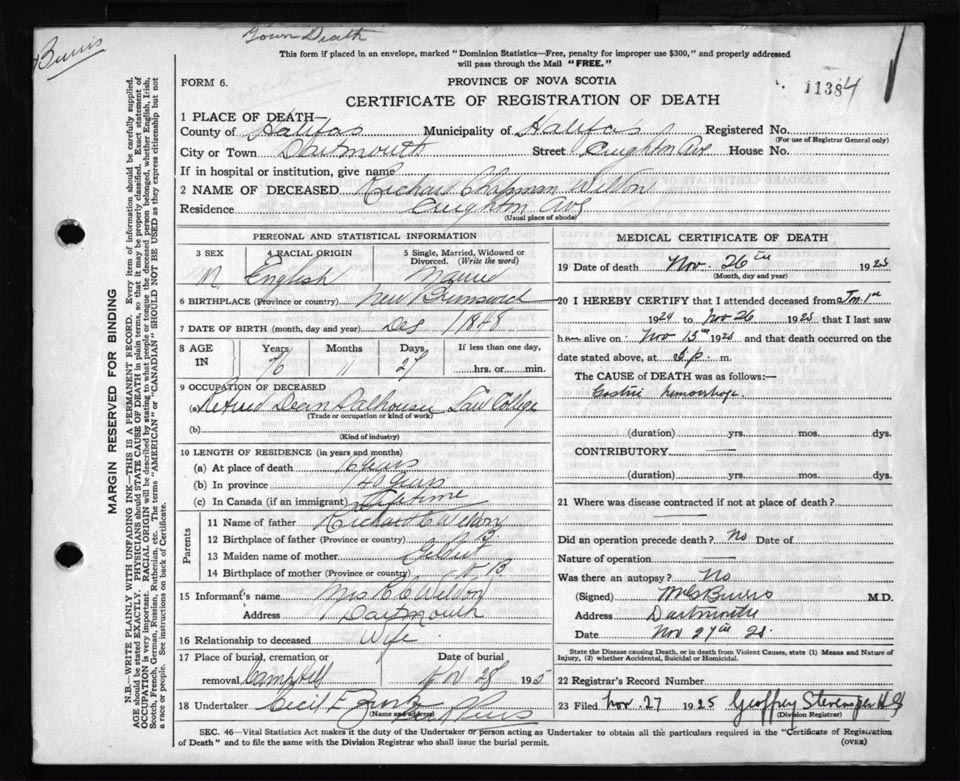 Burris
Town Death
This form if placed in an envelope, marked "Dominion Statistics—Free, penalty for improper use $300," and properly addressed
will pass through the Mail "FREE."
FORM 6.
PROVINCE OF NOVA SCOTIA
11384
CERTIFICATE OF REGISTRATION OF DEATH
1 PLACE OF DEATH—
County of Halifax Municipality of Halifax Registered No.
(For use of Registrar General only)
City or Town Dartmouth Street Creighton Ave House No.
If in hospital or institution, give name
2 NAME OF DECEASED Richard Chapman Weldon
Residence Creighton Ave
(Usual place of abode)
PERSONAL AND STATISTICAL INFORMATION
3 SEX 4 RACIAL ORIGIN 5 Single, Married, Widowed or
Divorced. (Write the word)
M English
6 BIRTHPLACE (Province or country) New Brunswick
7 DATE OF BIRTH (month, day and year) Dec 1848
8 AGE Years Months Days If less than one day,
IN 76 11 27 hrs. or min.
9 OCCUPATION OF DECEASED
(a) Retired Dean Dalhousie Law College
(Trade or occupation or kind of work)
(b)
(Kind of industry)
10 LENGTH OF RESIDENCE (in years and months)
(a) At place of death years
(b) In province 40 years
(c) In Canada (if an immigrant) Lifetime
Parents
11 Name of father Richard C Weldon
12 Birthplace of father (Province or country) N.B.
13 Maiden name of mother
14 Birthplace of mother (Province or country) N B
15 Informant's name Mrs R C Weldon
Address Dartmouth
16 Relationship to deceased Wife
17 Place of burial, cremation or Date of burial
removal, Camp Hill Nov 28 1925
18 Undertaker Cecil E Zink
(Name and address)
MEDICAL CERTIFICATE OF DEATH
19 Date of death Nov. 26th 1925
(Month, day and year)
20 I HEREBY CERTIFY that I attended deceased from Jan. 1st
1924 to Nov 26 1925 that I last saw
him alive on Nov 15th 1925 and that death occurred on the
date stated above, at p. m.
The CAUSE of DEATH was as follows:—
Gastric hemorrhage.
(duration) yrs. mos. dys.
CONTRIBUTORY
(duration) yrs. mos. dys.
21 Where was disease contracted if not at place of death?
Did an operation precede death? No Date of
Nature of operation
Was there an autopsy? No
(Signed) Burris M.D.
Address Dartmouth
Date Nov 27th 25.
State the Disease causing Death, or in death from Violent Causes, state (1) Means and Nature of
Injury, (2) whether Accidental, Suicidal or Homicidal.
22 Registrar's Record Number
23 Filed Nov. 27 1925 Geoffrey Stevens per H S
(Division Registrar)
SEC. 46—Vital Statistics Act makes it the duty of the Undertaker or person acting as Undertaker to obtain all the particulars required in the "Certificate of Registration
of Death" and to file the same with the Division Registrar who shall issue the burial permit.
(OVER)
MARGIN RESERVED FOR BINDING
N.B.—WRITE PLAINLY WITH UNFADING INK—THIS IS A PERMANENT RECORD. Every item of information should be carefully supplied.
AGE should be stated EXACTLY. PHYSICIANS should STATE CAUSE OF DEATH in plain terms, so that it may be properly classified. Exact statement of
OCCUPATION is very important. RACIAL ORIGIN will be described by stating to what people or tongue the deceased person belonged, whether English, Irish,
Scotch, French, German, Russian, Ruthenian, etc. The terms "AMERICAN" or "CANADIAN" SHOULD NOT BE USED as they express citizenship but not
a race or people. See instructions on back of Certificate.